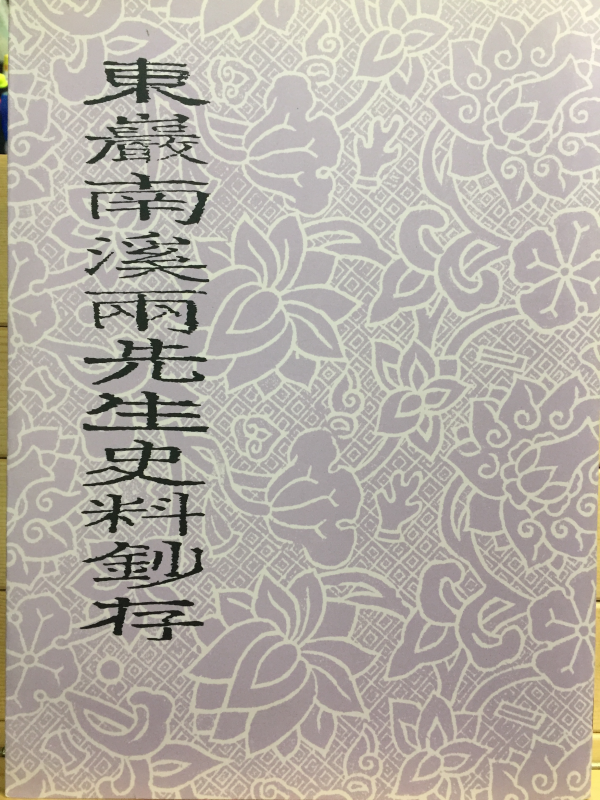 東巖南溪兩先生史料鈔存